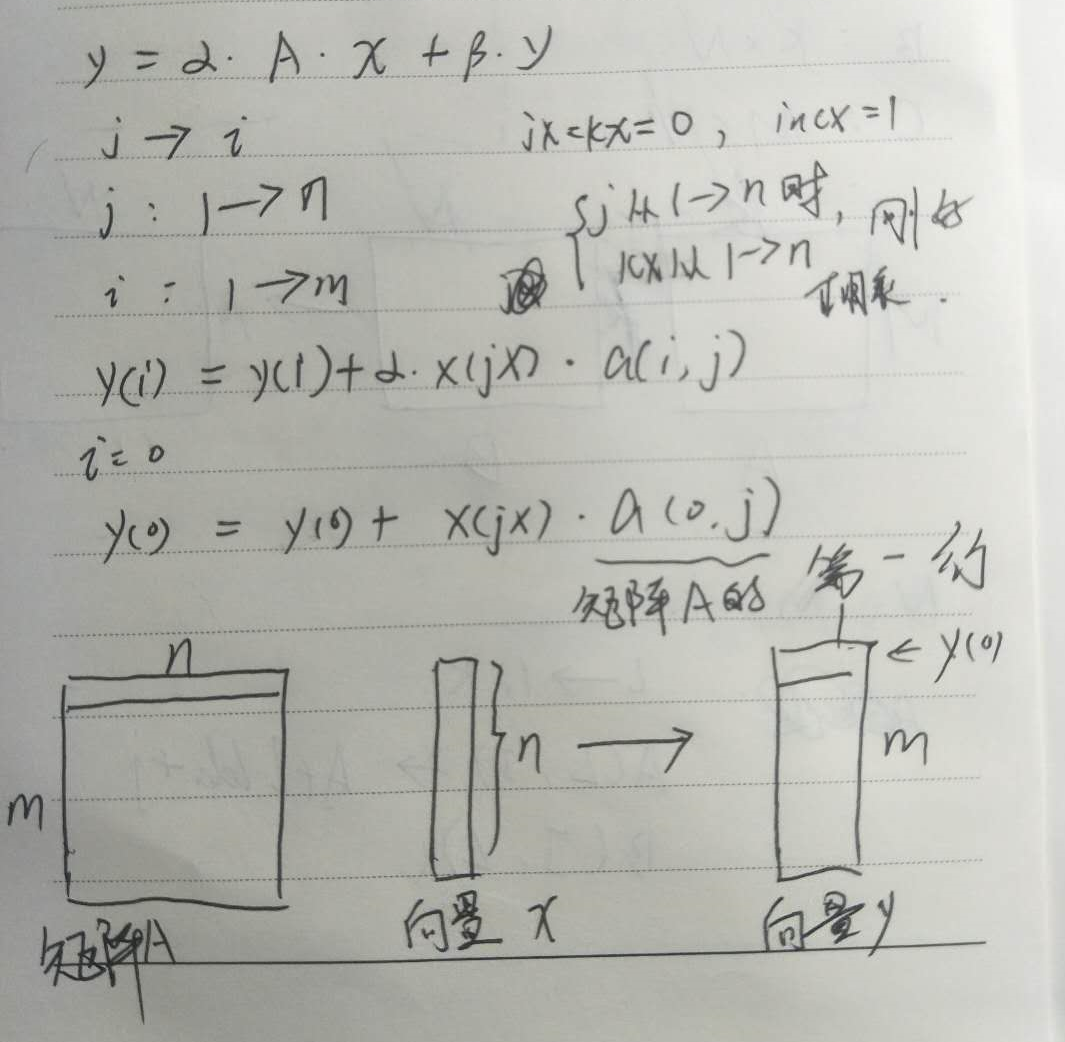 y = α· A · x + β· y
j → i    jx=kx=0, incx=1
j : 1→n    { j从1→n时, 刚好
i : 1→m    kx从1→n
y(i) = y(i)+α· x(jx) · a(i,j)
i=0
y(0) = y(0)+ x(jx) · a(0,j)
矩阵A的 第一行
n    ← y(0)
m    n → m
矩阵A    向量 x    向量 y